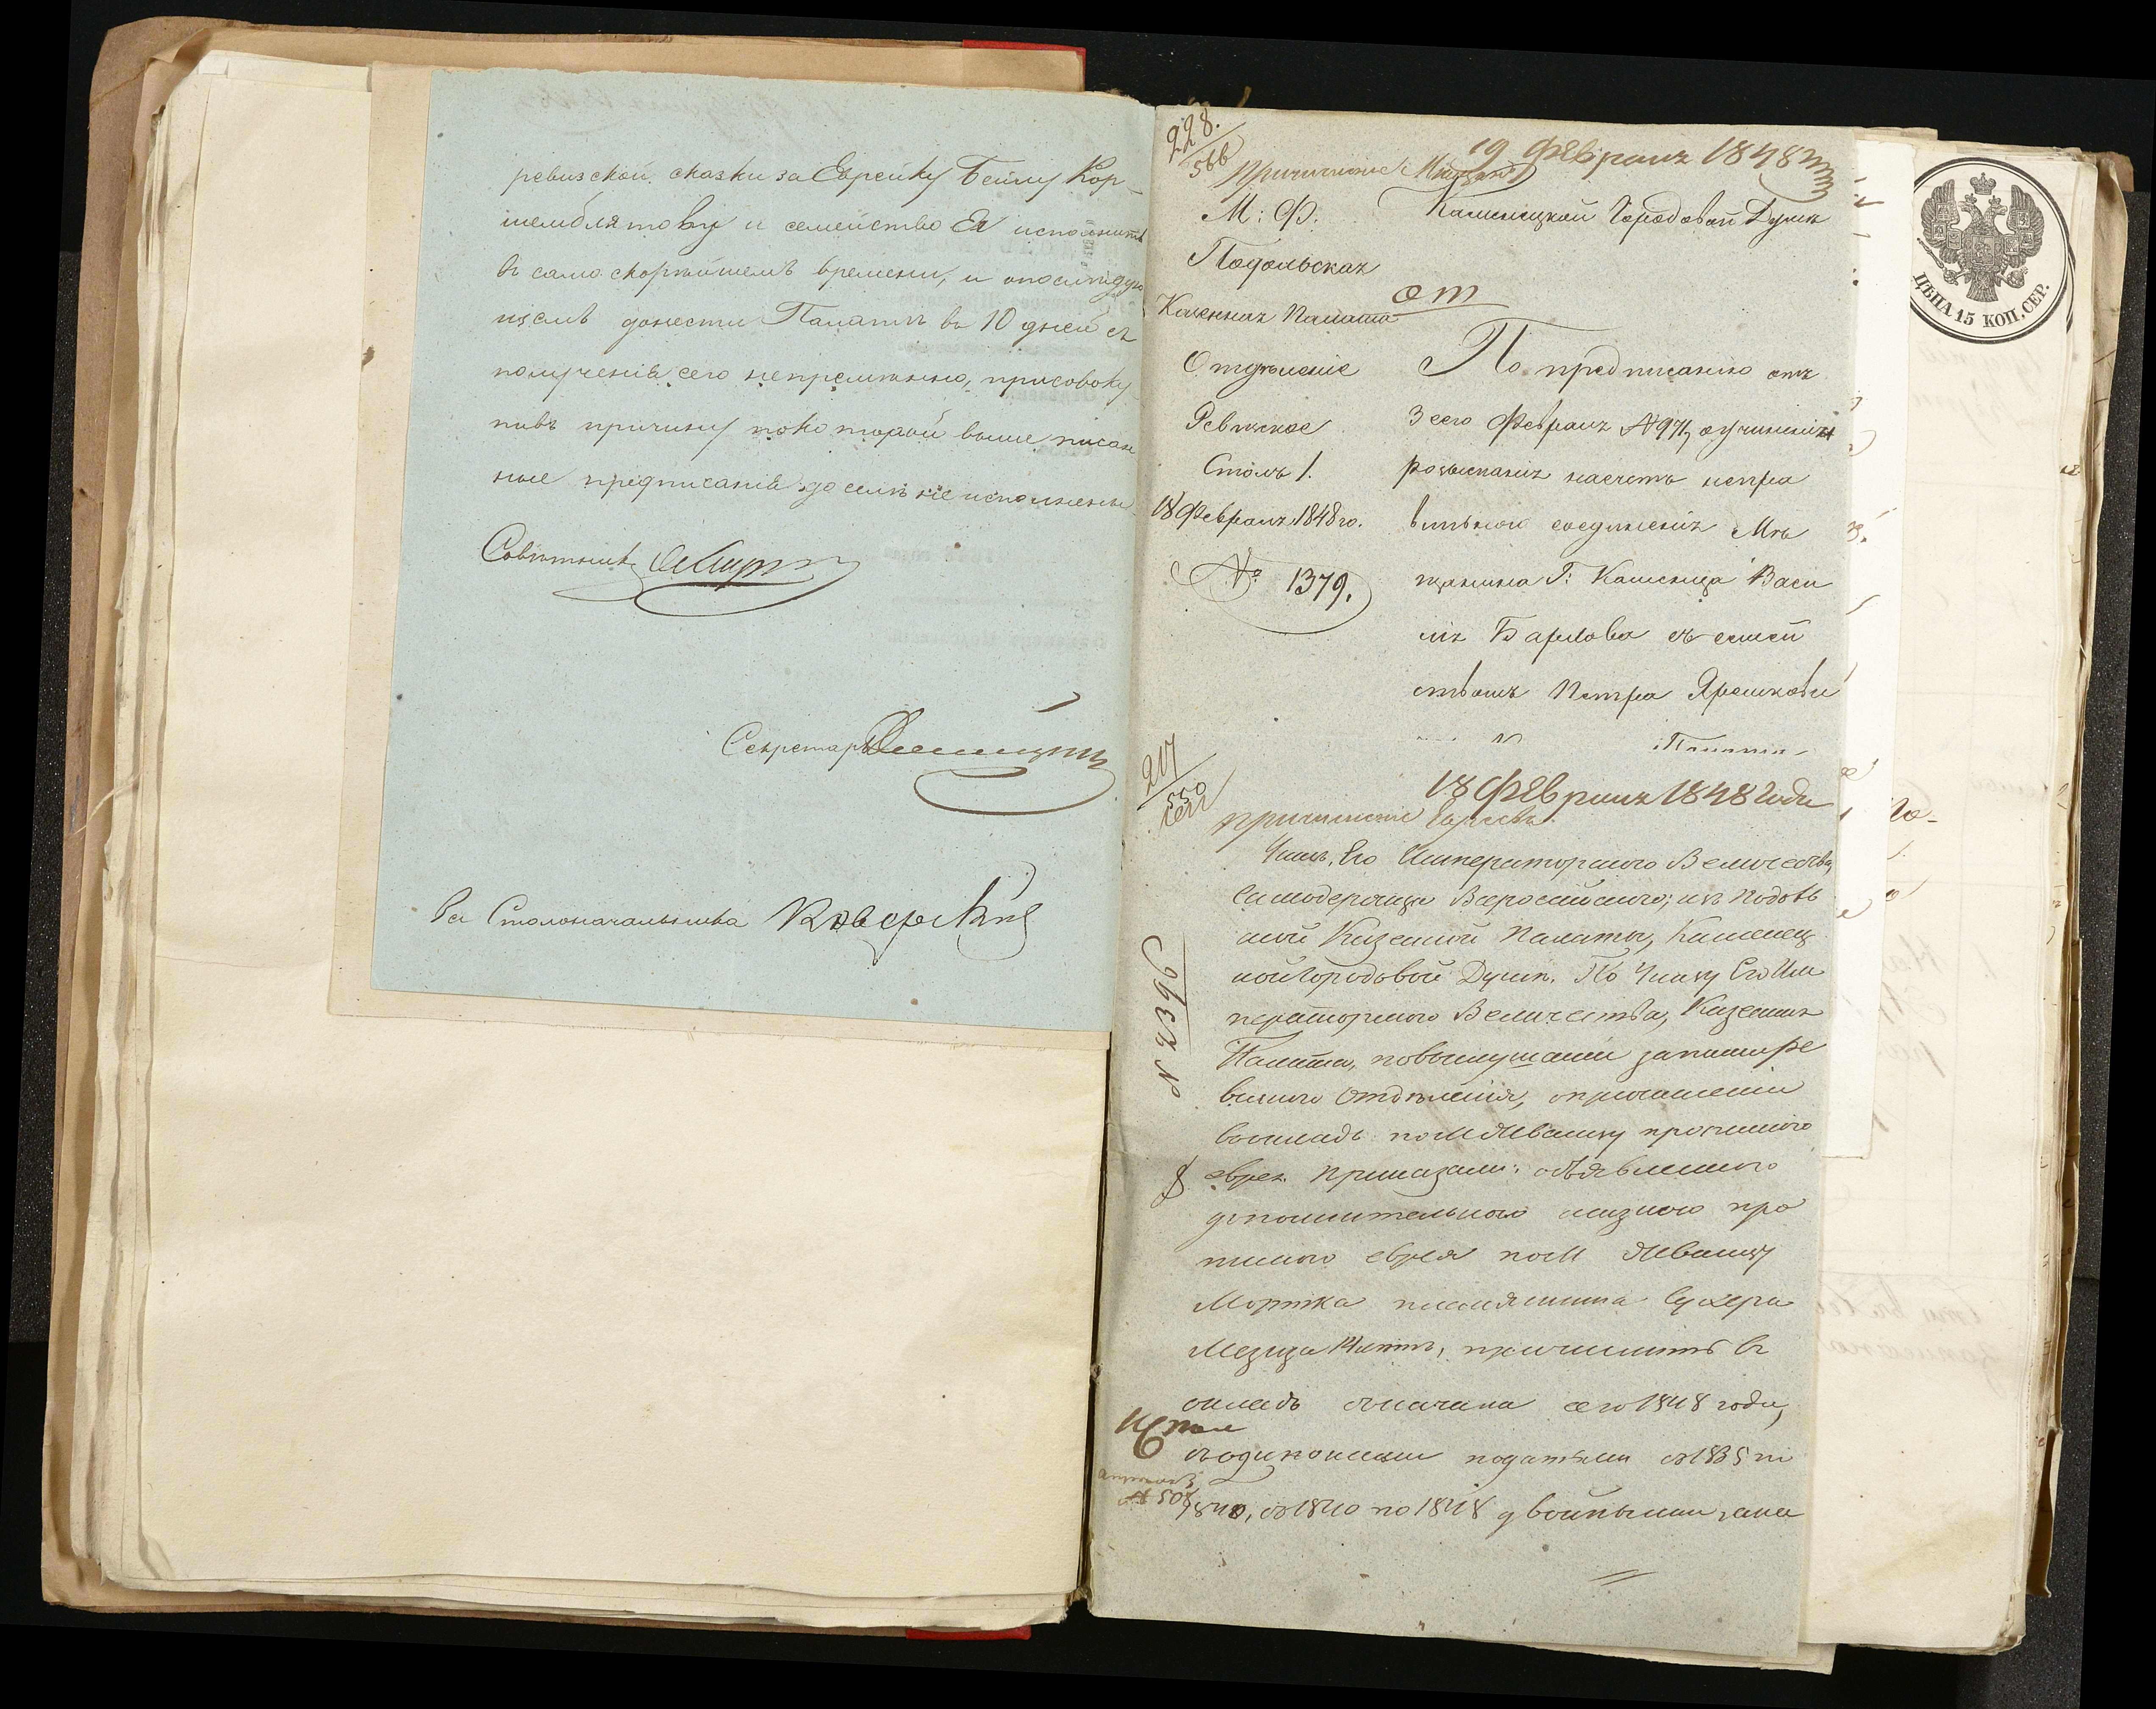 ревизской сказки за Еврейку Бейлу Кор-
шемблятову и семейство Ея исполнить
въ само скорѣйшемъ времени, и опослѣдую
щемъ донести Палатѣ въ 10 дней съ
полученія сего непремѣнно, присовоку
пивъ причину по которой выше писан
ные предписанія до селѣ не исполнены
Совѣтникъ
Секретарь
За Столоначальника
228.
566
19 Февраля 1848
причисленіе Мѣщанъ
М: Ф.
Подольская
Казенная Палата
Отдѣленіе
Ревижское
Столъ 1.
18 Февраля 1848 го.
№ 1379.
Каменецкой Городовой Думѣ
от
По предписанію отъ
3 сего Февраля № 971, о учиненіи
розысканія насчетъ непра
вильнаго соединенія Мѣ
щанина Г: Каменца Васи
лія Барлова съ семей
ствомъ Петра Ярошкови
217
550
18 Февраля 1848 Года
причисленіе Евреевъ
Указъ Его Императорскаго Величества,
Самодержца Всероссійскаго; изъ Подоль
ской Казенной Палаты, Каменец
кой Городовой Думѣ. По Указу Его Им
ператорскаго Величества, Казенная
Палата, повыслушаніи записки ре
визкаго Отдѣленія, о причисленіи
въ окладъ по М Жванцу прописнаго
еврея. Приказали: объявленнаго
дополнительною сказкою про
писнаго еврея по М Жванцу
Мортка
причислить въ
окладъ сначала сего 1848 года,
съ одинокими податьми съ 1835 по
1840, съ 1840 по 1848 двойными, а не
№ 1396